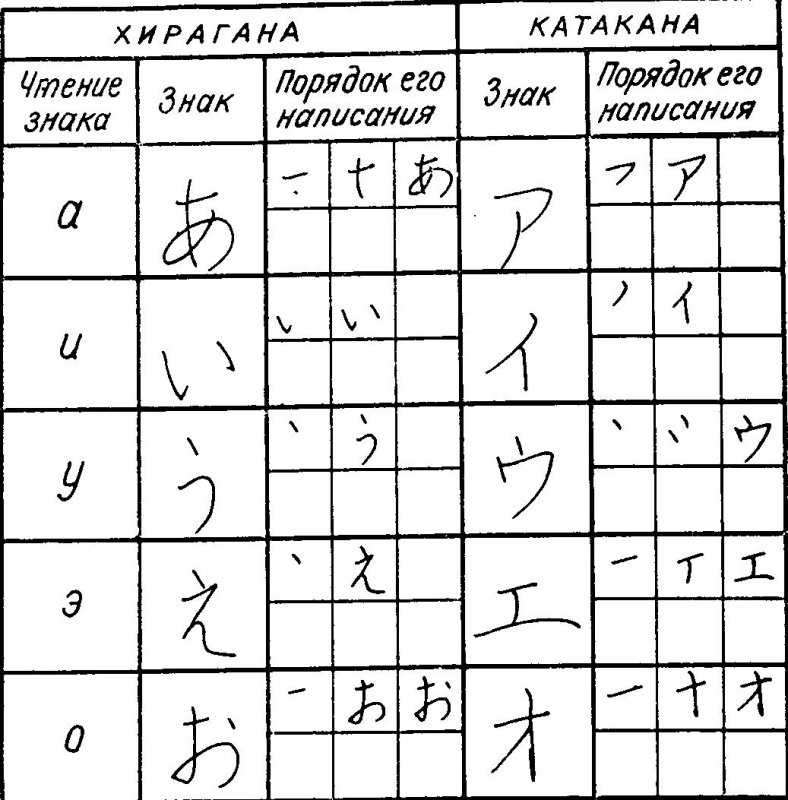 ХИРАГАНА КАТАКАНА
Чтение знака Знак Порядок его написания Знак Порядок его написания
а あ ー ナ あ ア フ ア
и い い イ ノ イ
у う 丶 う ウ 丶 ウ
э え 丶 え エ 一 丅 エ
о お 一 お お オ 一 ナ オ